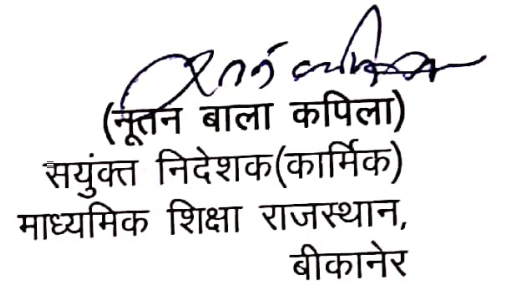 (नूतन बाला कपिला)
सयुंक्त निदेशक(कार्मिक)
माध्यमिक शिक्षा राजस्थान,
बीकानेर